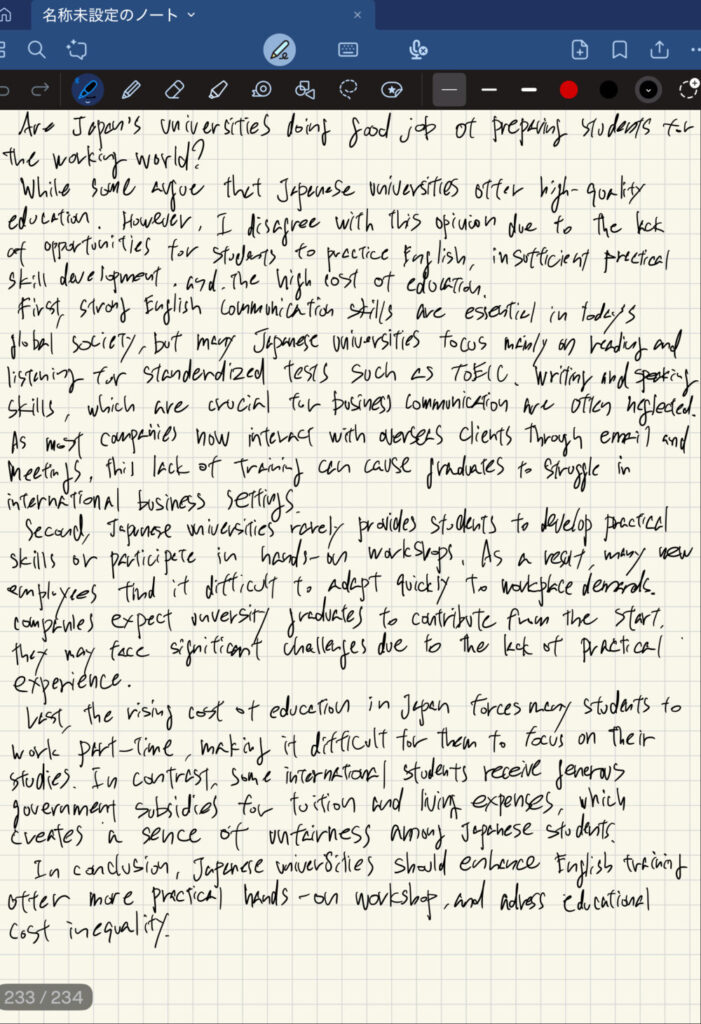 名称未設定のノート
Are Japan's universities doing good job of preparing students for
the working world?
While some argue that Japanese universities offer high-quality
education. However, I disagree with this opinion due to the lack
of opportunities for students to practice English, insufficient practical
skill development, and the high cost of education.
First, strong English communication skills are essential in today's
global society, but many Japanese universities focus mainly on reading and
listening for standardized tests such as TOEIC. Writing and speaking
skills, which are crucial for business communication are often neglected.
As most companies now interact with overseas clients through email and
meetings, this lack of training can cause graduates to struggle in
international business settings.
Second, Japanese universities rarely provides students to develop practical
skills or participate in hands-on workshops. As a result, many new
employees find it difficult to adapt quickly to workplace demands.
companies expect unversity graduates to contribute from the start.
they may face significant challenges due to the lack of practical
experience.
Last, the rising cost of education in Japan forces many students to
work part-time, making it difficult for them to focus on their
studies. In contrast, some international students receive generous
government subsidies for tuition and living expenses, which
creates a sence of unfairness among Japanese students.
In conclusion, Japanese universities should enhance English training
offer more practical hands-on workshop, and adress educational
cost inequality.
233 / 234